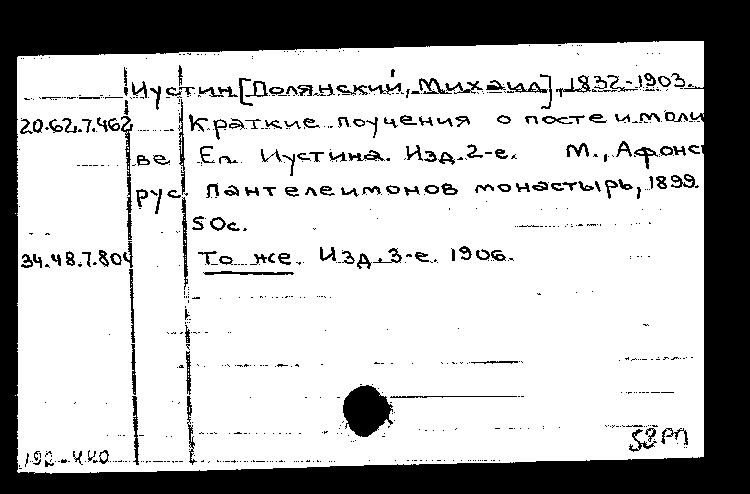 Иустин [Полянский, Михаил], 1832-1903.
20.62.7.462 Краткие поучения о посте и моли
ве Еп. Иустина. Изд. 2-е. М., Афонс
рус. Пантелеимонов монастырь, 1899.
50с.
34.48.7.804 То же. Изд. 3-е. 1906.
58РП
192-440